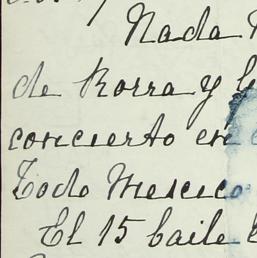 Nada
de Rorra y
concierto en
Todo Mexico
El 15 baile